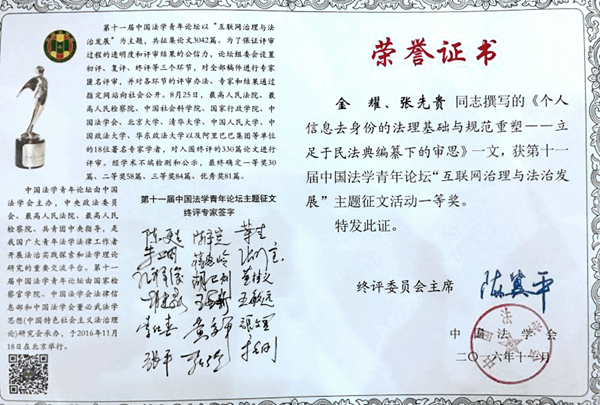 第十一届中国法学青年论坛以“互联网治理与法
治发展”为主题，共征集论文3042篇。为了保证评审
过程的透明度和评审结果的公信力，论坛组委会设置
初评、复评、终评等三个环节，对全部稿件进行专家
匿名评审，并对各环节的评审办法、专家和结果通过
指定网站向社会公开。8月25日，最高人民法院、最
高人民检察院、中国社会科学院、国家行政学院、中
国法学会、北京大学、清华大学、中国人民大学、中
国政法大学、华东政法大学以及阿里巴巴集团等单位
的18位著名专家学者，对入围终评的330篇论文进行
评审。经学术不端检测和公示，最终确定一等奖30
篇、二等奖58篇、三等奖84篇、优秀奖81篇。
中国法学青年论坛由中国
法学会主办，中央政法委员
会、最高人民法院、最高人民
检察院、共青团中央指导，是
我国广大青年法学法律工作者
开展法治实践探索和法学理论
研究的重要交流平台。第十一
届中国法学青年论坛由国家检
察官学院、中国法学会法律信
息部和中国法学会董必武法学
思想(中国特色社会主义法治理
论)研究会承办，于2016年11月
18日在北京举行。
第十一届中国法学青年论坛主题征文
终评专家签字
荣誉证书
金 耀、张先贵 同志撰写的《个人
信息去身份的法理基础与规范重塑——立
足于民法典编纂下的审思》一文，获第十一
届中国法学青年论坛“互联网治理与法治发
展”主题征文活动一等奖。
特发此证。
终评委员会主席
中国法学会
二〇一六年十一月